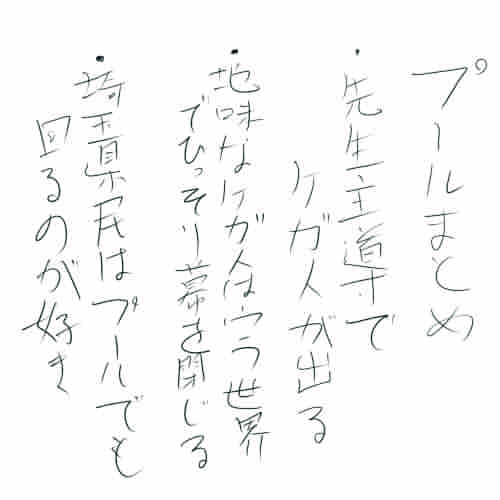 プールまとめ
・先生主導で
ケガ人が出る
・地味なケガ人は違う世界
でひっそり幕を閉じる
・埼玉県民はプールでも
回るのが好き